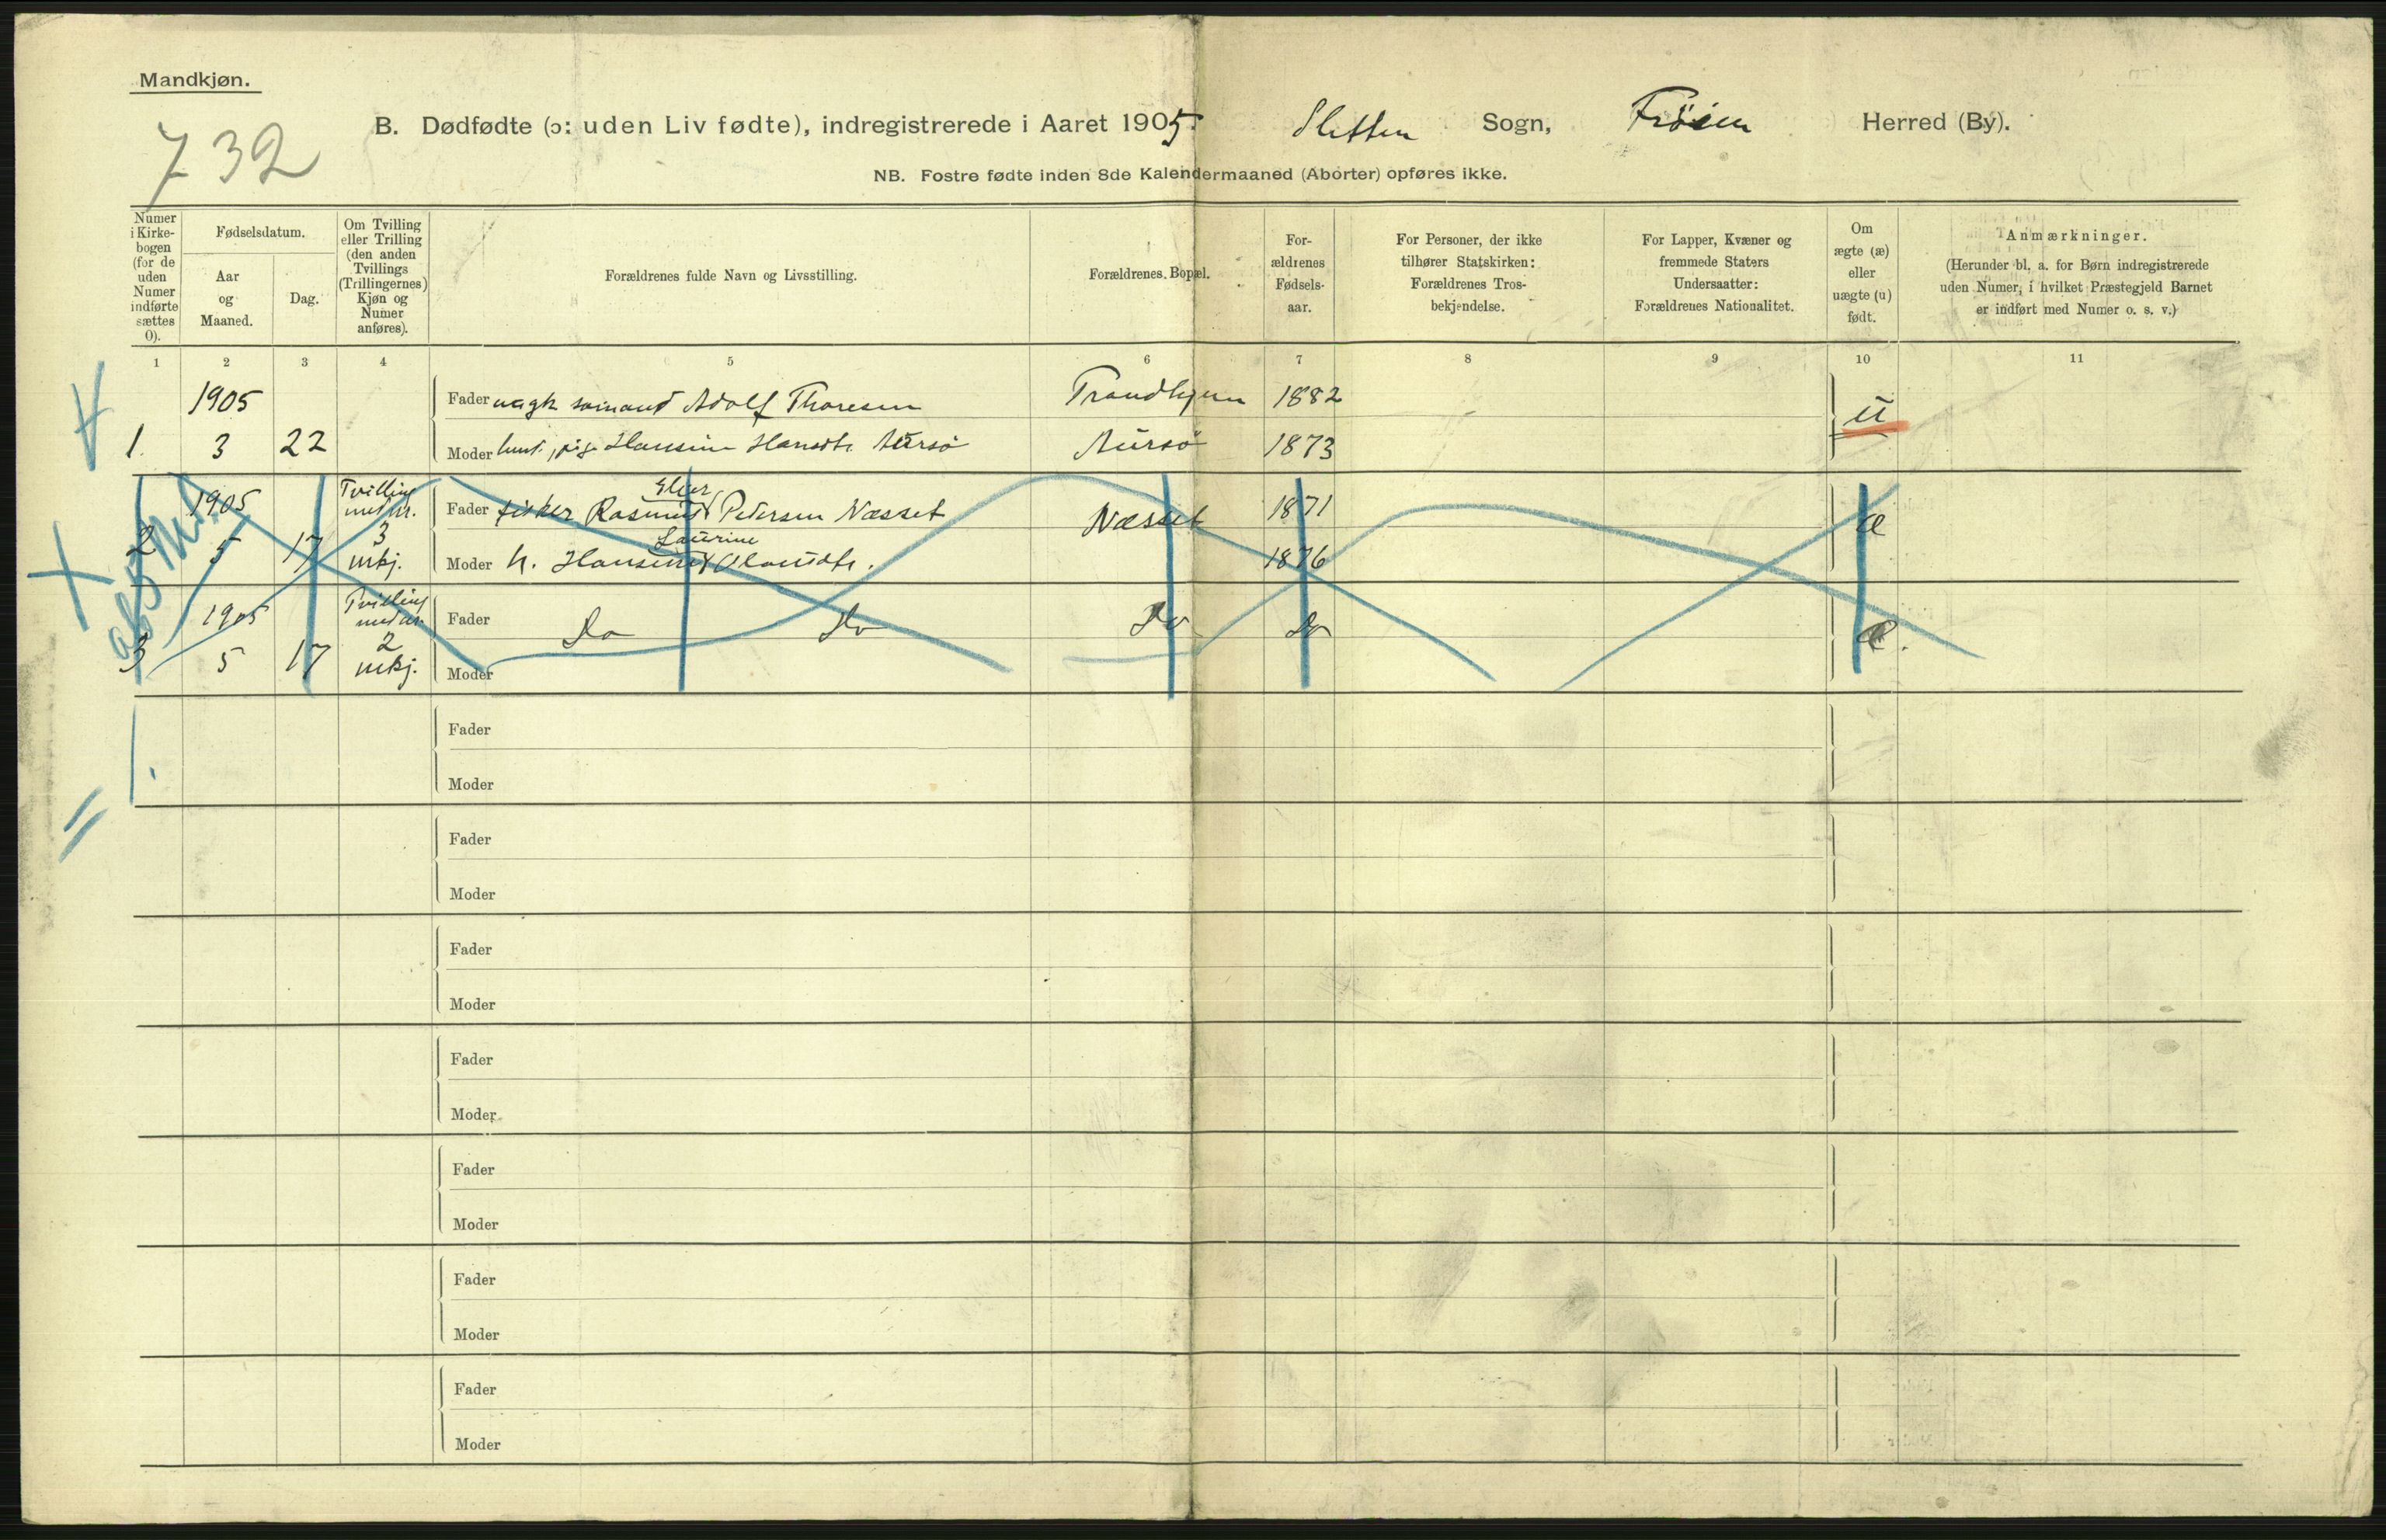 Mandkjøn.
732
B. Dødfødte (ɔ: uden Liv fødte), indregistrerede i Aaret 1905. Sletten Sogn, Frøien Herred (By).
NB. Fostre fødte inden 8de Kalendermaaned (Aborter) opføres ikke.
Numer i Kirkebogen (for de uden Numer indførte sættes 0).
Fødselsdatum.
Aar og Maaned.
Dag.
Om Tvilling eller Trilling (den anden Tvillings (Trillingernes) Kjøn og Numer anføres).
Forældrenes fulde Navn og Livsstilling.
Forældrenes Bopæl.
Forældrenes Fødselsaar.
For Personer, der ikke tilhører Statskirken: Forældrenes Trosbekjendelse.
For Lapper, Kvæner og fremmede Staters Undersaatter: Forældrenes Nationalitet.
Om ægte (æ) eller uægte (u) født.
Anmærkninger.
(Herunder bl. a. for Børn indregistrerede uden Numer, i hvilket Præstegjeld Barnet er indført med Numer o. s. v.)
1 2 3 4 5 6 7 8 9 10 11
1905 Fader ungk sømand Adolf Thoresen Trondhjem 1882 u
1. 3 22 Moder pige Hansine Hansdtr. Aursø Aursø 1873
Elier
1905 Tvilling med nr. 3 Fader fisker Rasmus Petersen Næsset Næsset 1871 æ
Laurine
2 5 17 mkj. Moder h. Hansine Olausdtr. 1876
1905 Tvilling med nr. 2 Fader Do Do Do Do æ.
3 5 17 mkj. Moder
Fader
Moder
Fader
Moder
Fader
Moder
Fader
Moder
Fader
Moder
Fader
Moder
Fader
Moder